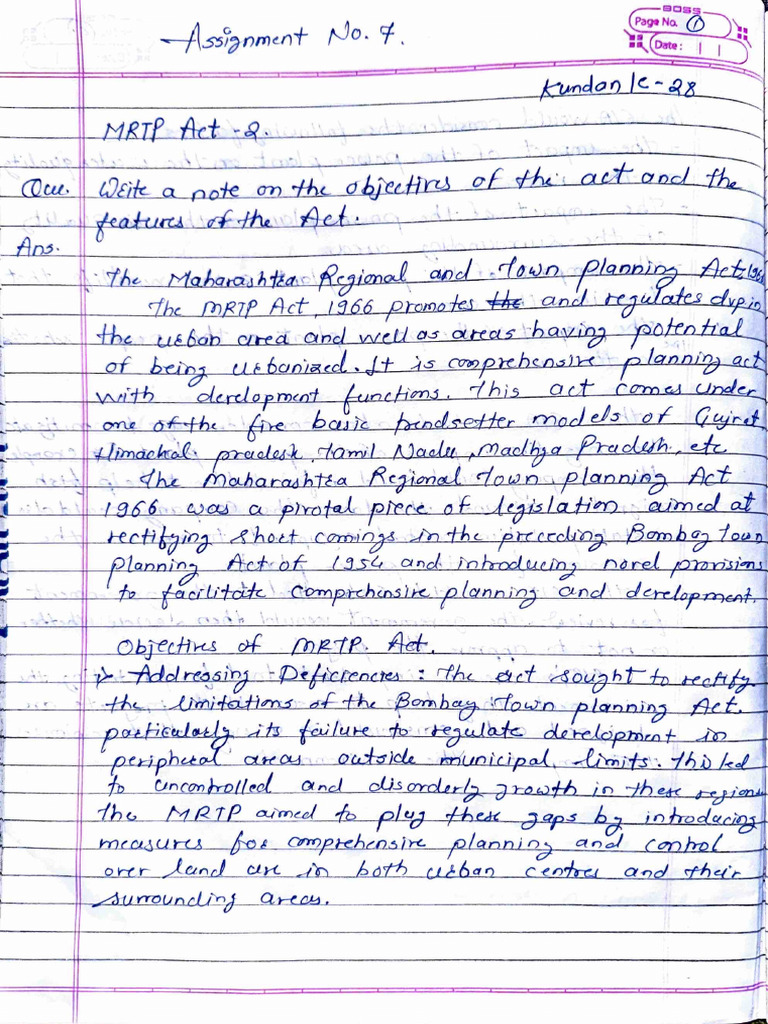 BOSS
Page No. 1
Date: | |
Assignment No. 7.
Kundan K - 28
MRTP Act - 2.
Que. Write a note on the objectives of the act and the
features of the Act.
Ans.
The Maharashtra Regional and Town Planning Act, 196
The MRTP Act, 1966 promotes the and regulates dvp in
the urban area and well as areas having potential
of being urbanized. It is comprehensive planning act
with development functions. This act comes under
one of the five basic trendsetter models of Gujrat
Himachal pradesh, Tamil Nadu, Madhya Pradesh, etc
The Maharashtra Regional Town planning Act
1966 was a pivotal piece of legislation aimed at
rectifying short comings in the preceding Bombay Town
planning Act of 1954 and introducing novel provisions
to facilitate comprehensive planning and development.
Objectives of MRTP Act.
Addressing Deficiencies : The act sought to rectify
the limitations of the Bombay Town planning Act.
particularly its failure to regulate development in
peripheral areas outside municipal limits. This led
to uncontrolled and disorderly growth in these regions
the MRTP aimed to plug these gaps by introducing
measures for comprehensive planning and control
over land use in both urban centres and their
surrounding areas.